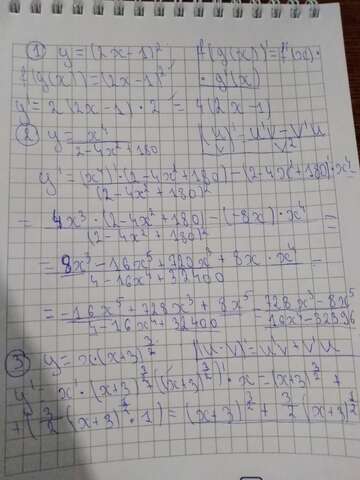 ① y = (2x-1)²   f(g(x))' = f'(x)·
f(g(x)) = (2x-1)²   · g'(x)
y' = 2(2x-1) · 2 = 4(2x-1)
② y = x⁴ / (2-4x²+180)   (u/v)' = (u'v - v'u) / v²
y' = ((x⁴)' · (2-4x²+180) - (2-4x²+180)' · x⁴) / (2-4x²+180)² =
= (4x³ · (2-4x²+180) - (-8x) · x⁴) / (2-4x²+180)² =
= (8x³ - 16x⁵ + 720x³ + 8x · x⁴) / (4-16x⁴+32400) =
= (-16x⁵ + 728x³ + 8x⁵) / (4-16x⁴+32400) = (728x³ - 8x⁵) / (16x⁴-32396)
③ y = x·(x+3)^(3/2)   (u·v)' = u'v + v'u
y' = x' · (x+3)^(3/2) + ((x+3)^(3/2))' · x = (x+3)^(3/2) +
+ (3/2 (x+3)^(1/2) · 1) = (x+3)^(3/2) + 3/2 (x+3)^(1/2)